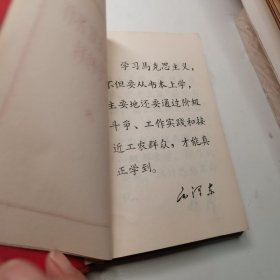 学习马克思主义,
不但要从书本上学,
主要地还要通过阶级
斗争、工作实践和接
近工农群众,才能真
正学到。
毛泽东